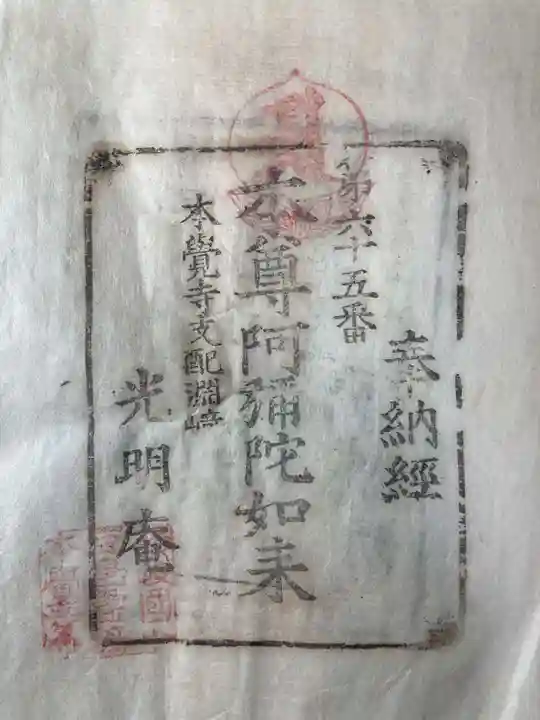 奉納經
第六十五番
本尊阿彌陀如来
本覺寺支配淵﨑
光明庵